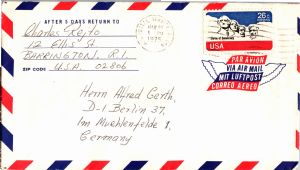 AFTER 5 DAYS RETURN TO
Charles Rejto
12 Ellis St
BARRINGTON, R.I.
U.S.A. 02806
ZIP CODE
26c
USA
PAR AVION
VIA AIR MAIL
MIT LUFTPOST
CORREO AEREO
Herrn Alfred Gerth,
D-1 Berlin 37,
Im Muehlenfelde 1,
Germany